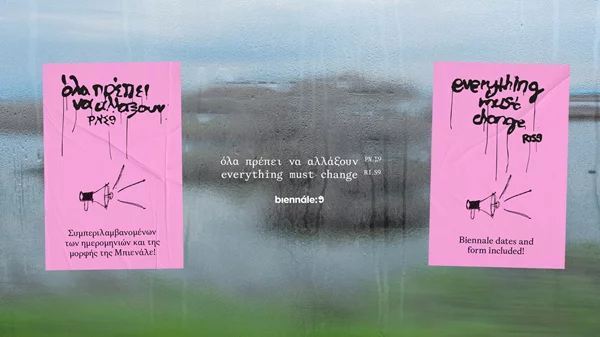 όλα πρέπει
να αλλάξουν
Ρ.Ν.Σ9
Συμπεριλαμβανομένων
των ημερομηνιών και της
μορφής της Μπιενάλε!
όλα πρέπει να αλλάξουν ΡΝ.Σ9
everything must change RI.S9
bιennále:9
everything
must
change
RIS9
Biennale dates and
form included!